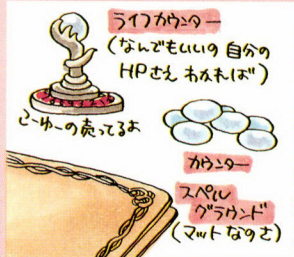 ライフカウンター
(なんでもいいの 自分の
HPさえ わかれば)
こーゆーの売ってるよ
カウンター
スペル
グラウンド
(マットなのさ)